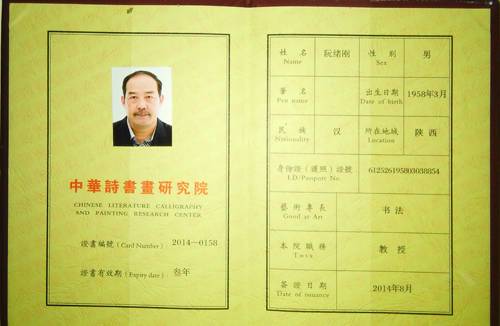 中華詩書畫研究院
CHINESE LITERATURE CALLIGRAPHY
AND PAINTING RESEARCH CENTER
證書編號 (Card Number) 2014—0158
證書有效期 (Expiry date) 叁年
姓名 阮绪刚 性别 男
Name Sex
筆名 出生日期 1958年3月
Pen name Date of birth
民族 汉 所在地域 陕西
Nationality Location
身份證（護照）證號 612526195803038854
I.D/Passport No.
藝術專長 书法
Good at Art
本院職務 教授
簽證日期 2014年8月
Date of issuance